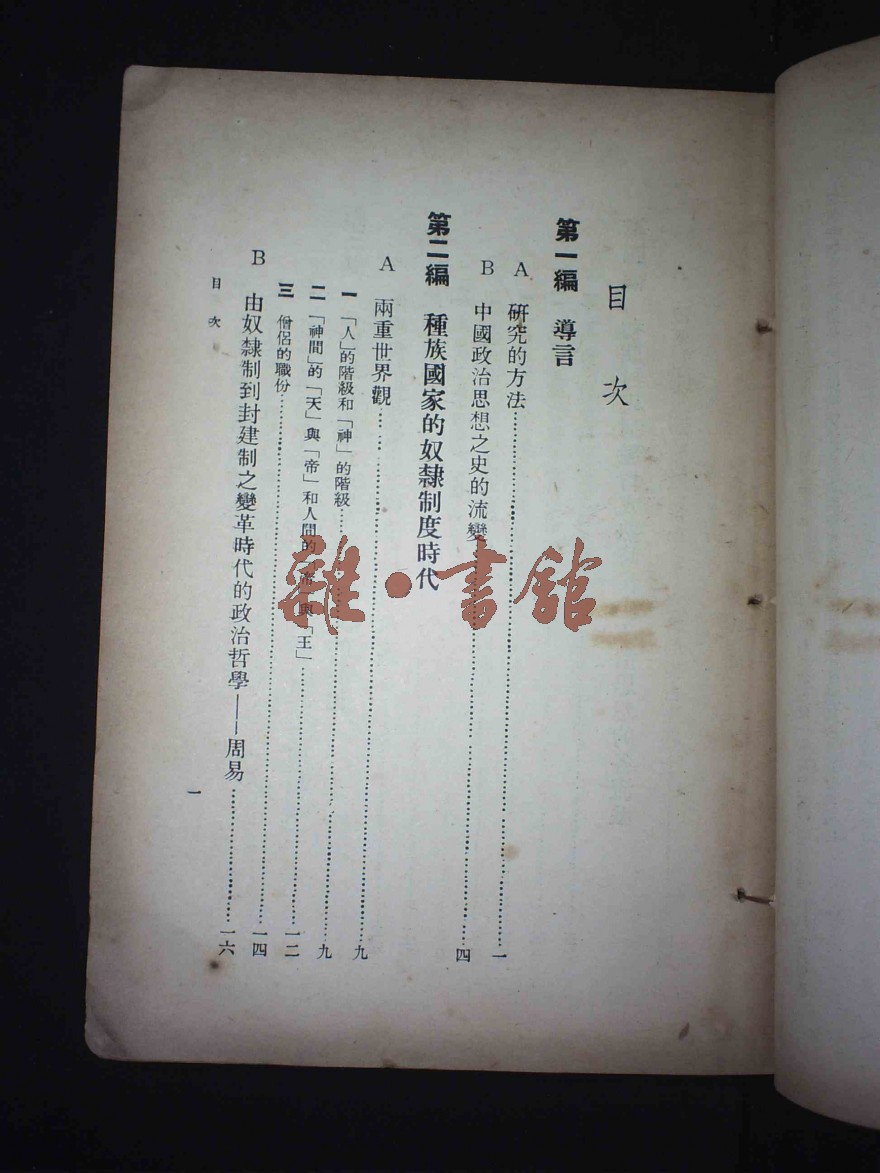 目次
第一編 導言
A 研究的方法……一
B 中國政治思想之史的流變……四
第二編 種族國家的奴隸制度時代
A 兩重世界觀……九
一 「人」的階級和「神」的階級……九
二 「神間」的「天」與「帝」和人間的「帝」與「王」……一二
三 僧侶的職份……一四
B 由奴隸制到封建制之變革時代的政治哲學——周易……一六
目次
一
雜·書館